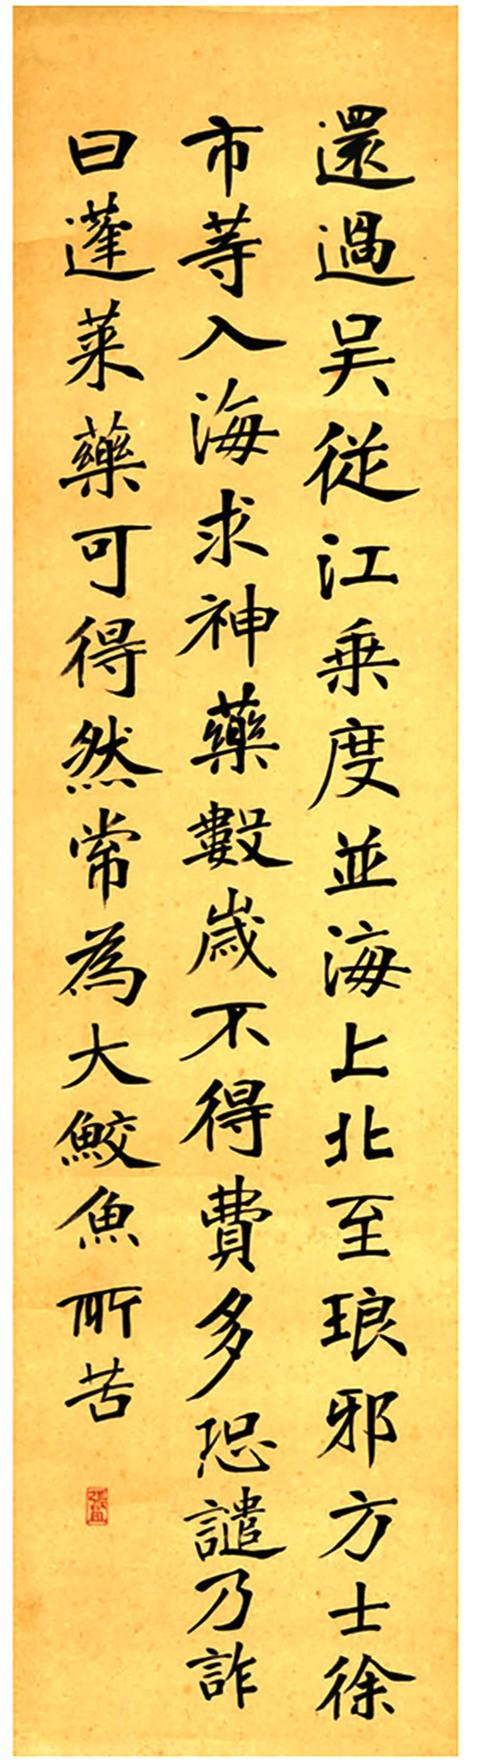 還過吳從江乗度並海上北至琅邪方士徐
市等入海求神藥數歲不得費多恐譴乃詐
曰蓬萊藥可得然常為大鮫魚所苦